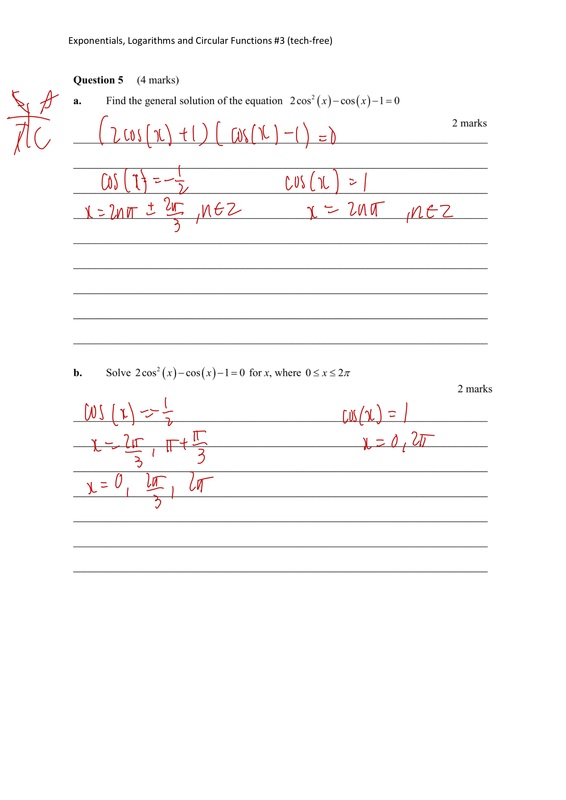 Exponentials, Logarithms and Circular Functions #3 (tech-free)
Question 5 (4 marks)
S A
T C
a. Find the general solution of the equation 2cos²(x)−cos(x)−1=0
2 marks
(2cos(x)+1)(cos(x)−1)=0
cos(x)=−1/2 cos(x)=1
x=2nπ ± 2π/3, n∈Z x=2nπ, n∈Z
b. Solve 2cos²(x)−cos(x)−1=0 for x, where 0≤x≤2π
2 marks
cos(x)=−1/2 cos(x)=1
x=2π/3, π+π/3 x=0, 2π
x=0, 2π/3, 2π